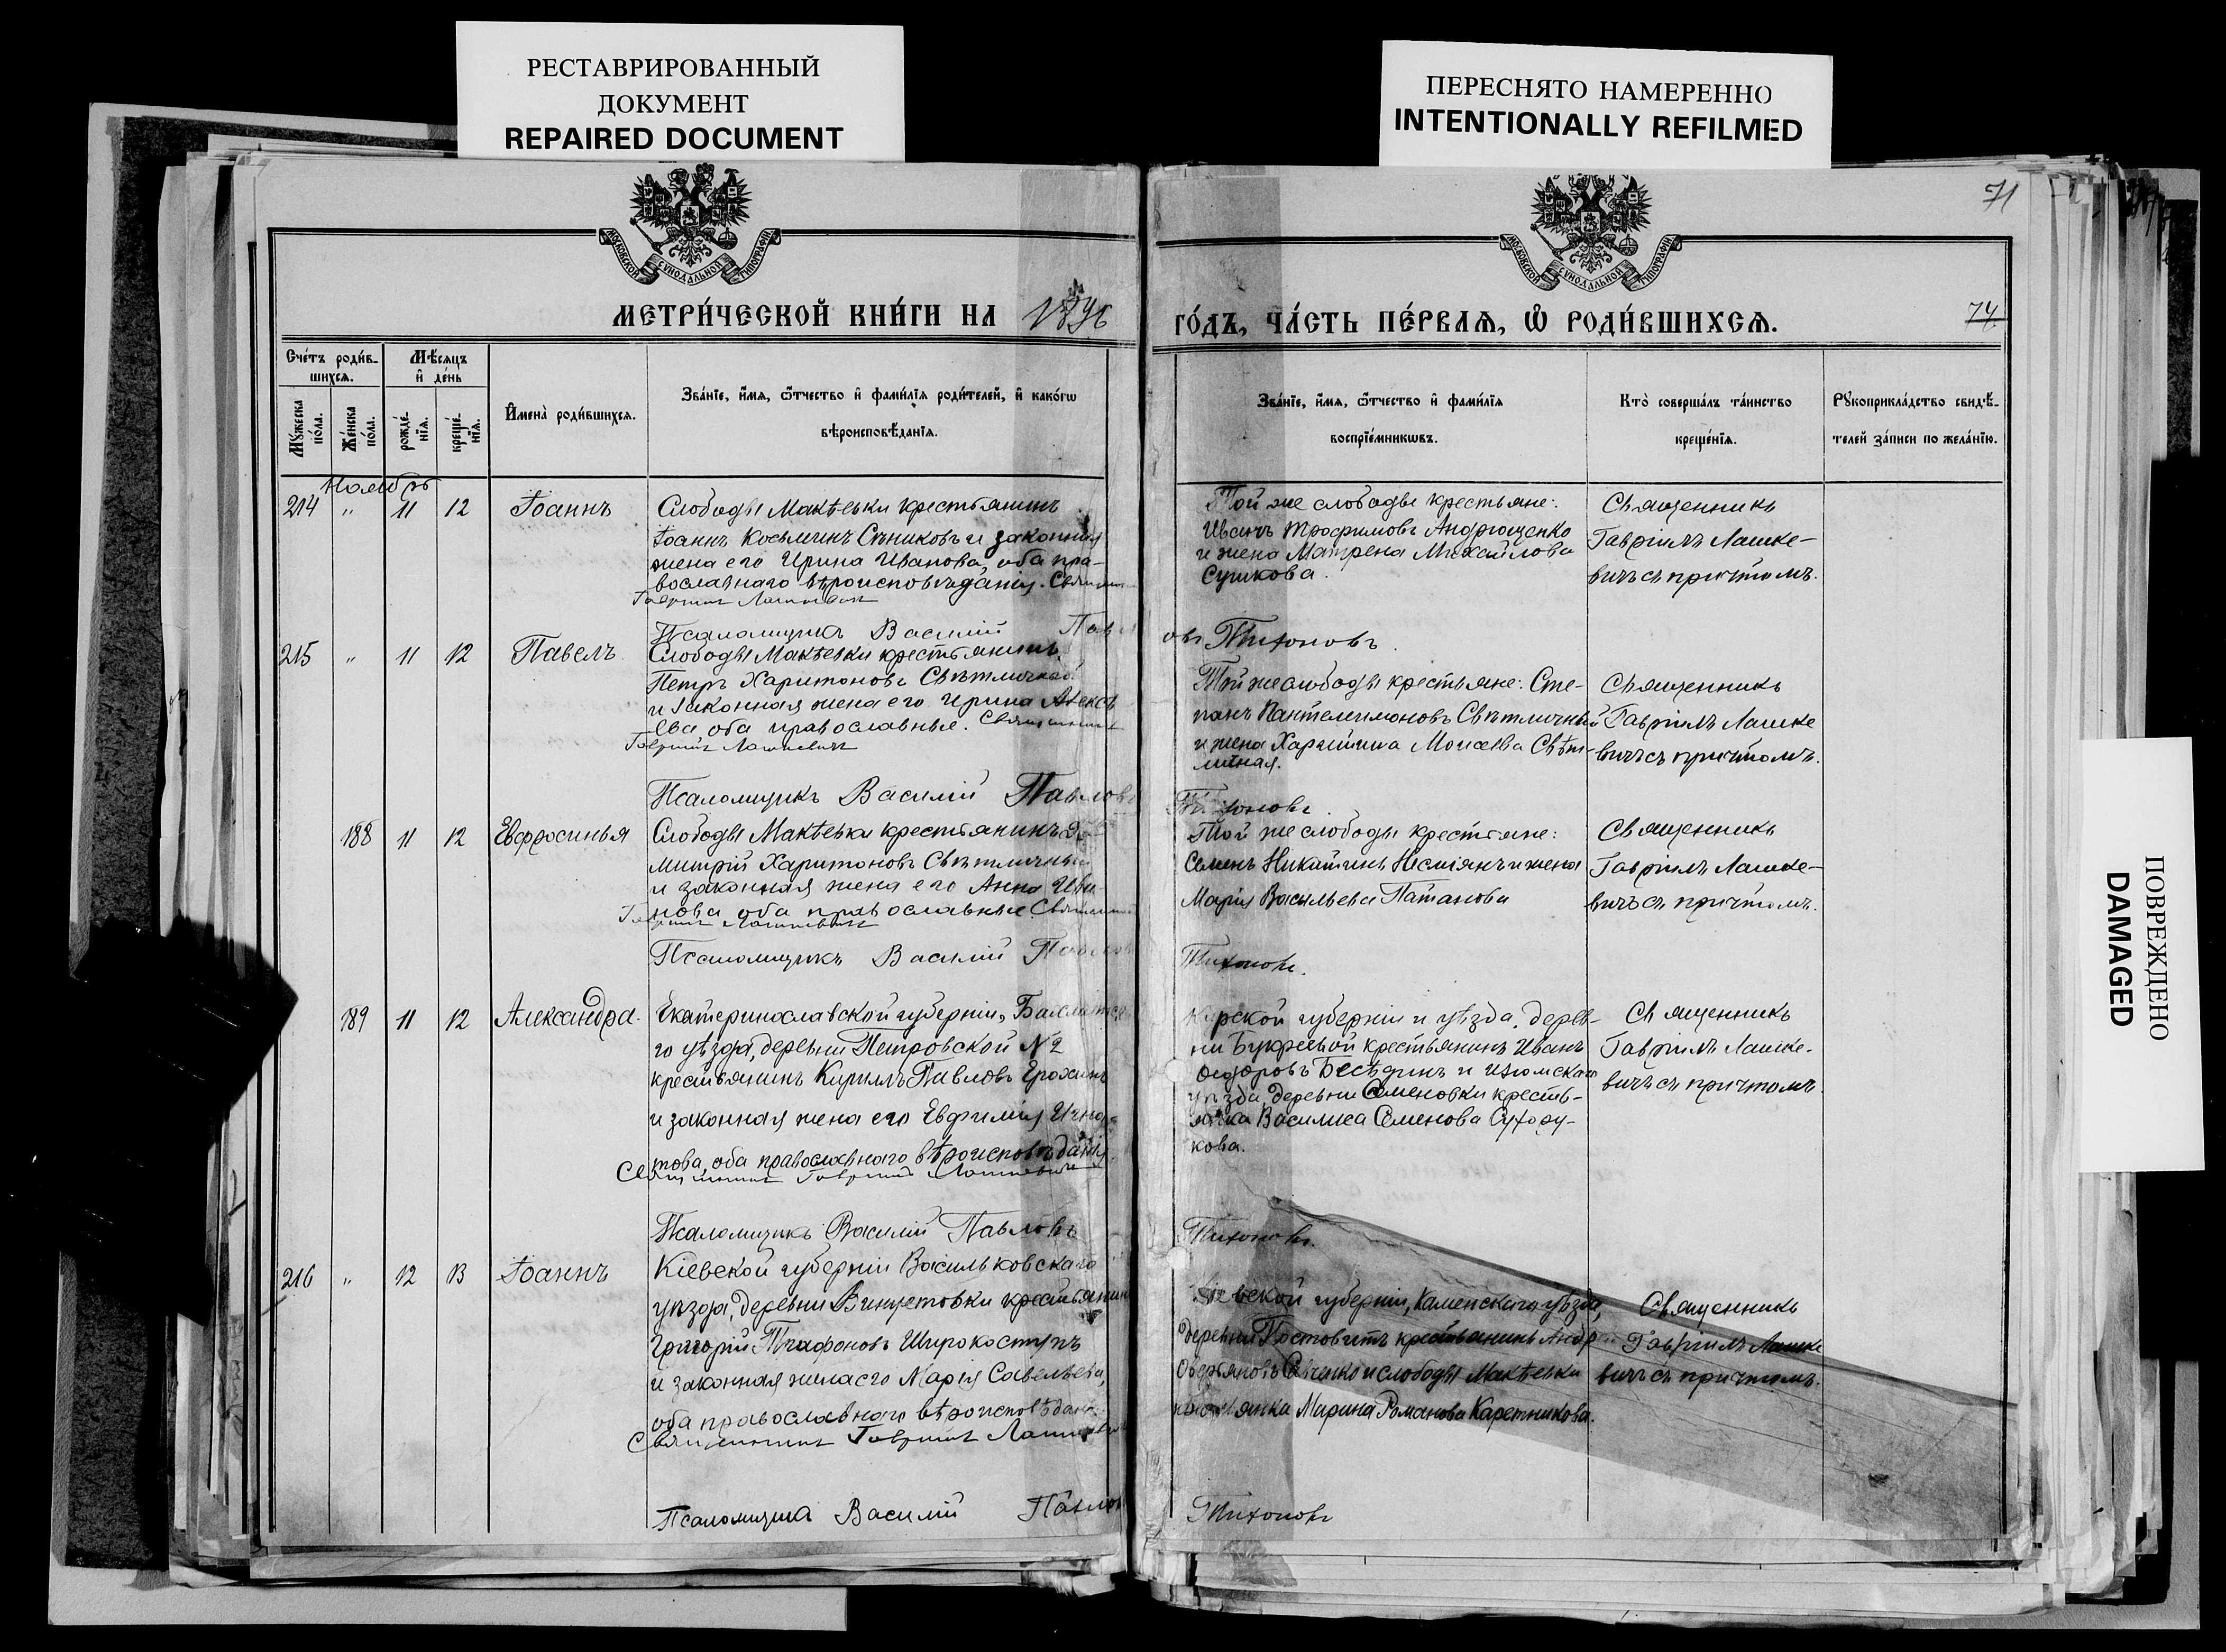 РЕСТАВРИРОВАННЫЙ
ДОКУМЕНТ
REPAIRED DOCUMENT
ПЕРЕСНЯТО НАМЕРЕННО
INTENTIONALLY REFILMED
71
МОСКОВСКОЙ СѴНОДАЛЬНОЙ ТИПОГРАФІИ
МОСКОВСКОЙ СѴНОДАЛЬНОЙ ТИПОГРАФІИ
МЕТРИ́ЧЕСКОЙ КНИ́ГИ НА 1896
ГО́ДЪ, ЧА́СТЬ ПЕ́РВАѦ, Ѽ РОДИ́ВШИХСѦ.
74
Сче́тъ роди́в-
шихсѧ.
Мѣ́сѧцъ
и҆ де́нь
Мꙋ́жеска по́ла.
Же́нска по́ла.
рожде́-
нїѧ.
креще́-
нїѧ.
И҆мена̀ роди́вшихсѧ.
Зва́нїе, и҆́мѧ, ѻ҆́тчество и҆ фамі́лїѧ роди́телей, и҆ како́гѡ
вѣроисповѣ́данїѧ.
Зва́нїе, и҆́мѧ, ѻ҆́тчество и҆ фамі́лїѧ
воспрїе́мникѡвъ.
Кто̀ соверша́лъ та́инство
креще́нїѧ.
Рꙋкоприкла́дство свидѣ́-
телей за́писи по жела́нїю.
Ноябрь
214 " 11 12 Іоаннъ
Слободы Макѣевки крестьянинъ
Іоаннъ Косьминъ Сѣниковъ и законная
жена его Ирина Иванова, оба пра-
вославнаго вѣроисповѣданія. Священникъ
Гавріилъ Лашкевичъ
Той же слободы крестьяне:
Иванъ Трофимовъ Андрющенко
и жена Матрена Михайлова
Сушкова.
Священникъ
Гавріилъ Лашке-
вичъ съ причтомъ.
Псаломщикъ Василій Павловъ Тихоновъ.
215 " 11 12 Павелъ
Слободы Макѣевки крестьянинъ
Петръ Харитоновъ Свѣтличный
и законная жена его Ирина Алексѣ
ева оба православные. Священникъ
Гавріилъ Лашкевичъ
Той же слободы крестьяне: Сте-
панъ Пантелеимоновъ Свѣтличный
и жена Харитина Моисеева Свѣт-
личная.
Священникъ
Гавріилъ Лашке
вичъ съ причтомъ.
Псаломщикъ Василій Павловъ Тихоновъ.
188 11 12 Евфросинья
Слободы Макѣевки крестьянинъ Ди
митрій Харитоновъ Свѣтличный
и законная жена его Анна Ива
нова оба православные Священникъ
Гавріилъ Лашкевичъ
Той же слободы крестьяне:
Семенъ Никитинъ и жена
Марія Васильева
Священникъ
Гавріилъ Лашке-
вичъ съ причтомъ.
Псаломщикъ Василій Павловъ Тихоновъ.
189 11 12 Александра.
Екатеринославской губерніи, Бахмутска
го уѣзда, деревни Петровской №2
крестьянинъ Кириллъ Павловъ Ерохинъ
и законная жена его Евфимія Игна
това, оба православнаго вѣроисповѣданія.
Священникъ Гавріилъ Лашкевичъ
Курской губерніи и уѣзда, дерев-
ни Букреевой крестьянинъ Иванъ
Ѳедоровъ Бесѣдинъ и Изюмскаго
уѣзда, деревни Семеновки кресть-
янка Василиса Семенова Сухору-
кова.
Священникъ
Гавріилъ Лашке-
вичъ съ причтомъ.
Псаломщикъ Василій Павловъ Тихоновъ.
216 " 12 13 Іоаннъ
Кіевской губерніи Васильковскаго
уѣзда, деревни Винцетовки крестьянинъ
Григорій Трифоновъ Широкоступъ
и законная жена его Марія Савельева,
оба православнаго вѣроисповѣданія.
Священникъ Гавріилъ Лашкевичъ
Кіевской губерніи, Каменскаго уѣзда,
деревни крестьянинъ
Савченко и слободы Макѣевки
крестьянка Марина Романова Каретникова.
Священникъ
Гавріилъ Лашке
вичъ съ причтомъ.
Псаломщикъ Василій Павловъ Тихоновъ
ПОВРЕЖДЕНО
DAMAGED